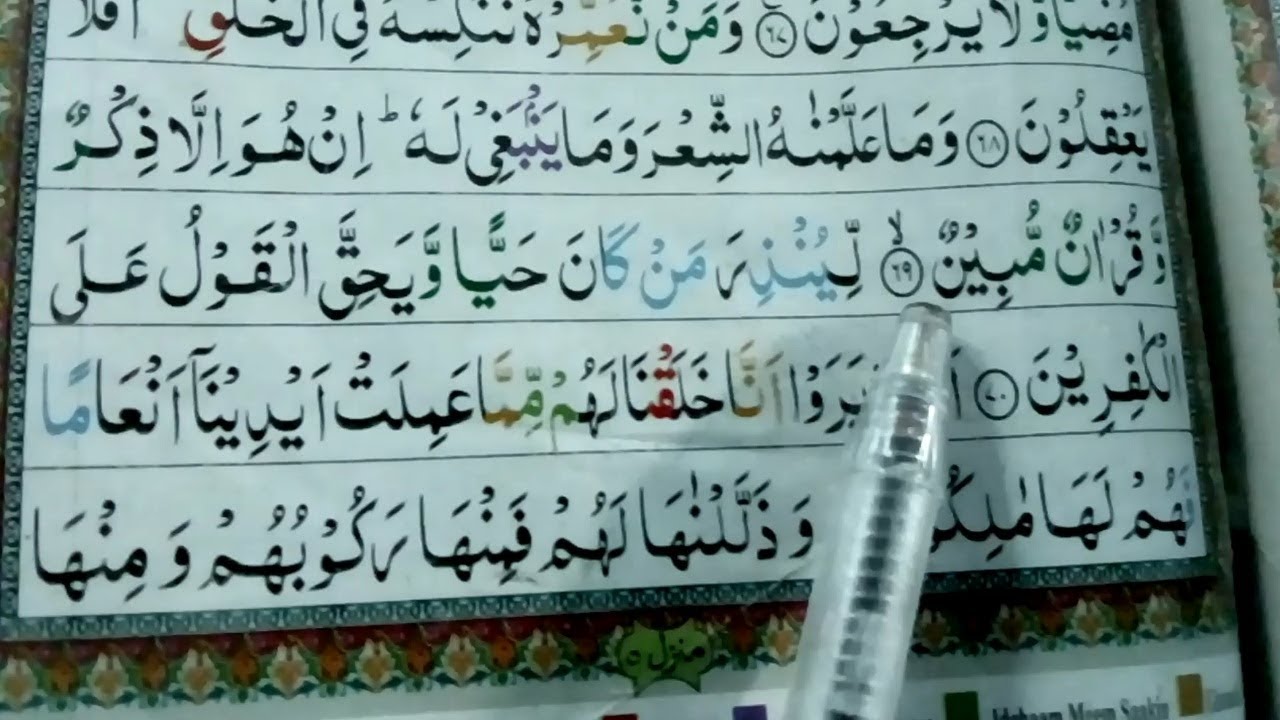 مُضِيًّا وَّلَا يَرْجِعُوْنَ ﴿٦٧﴾ وَمَنْ نُّعَمِّرْهُ نُنَكِّسْهُ فِي الْخَلْقِ ۭ اَفَلَا
يَعْقِلُوْنَ ﴿٦٨﴾ وَمَا عَلَّمْنٰهُ الشِّعْرَ وَمَا يَنْۢبَغِيْ لَهٗ ؕ اِنْ هُوَ اِلَّا ذِكْرٌ
وَّقُرْاٰنٌ مُّبِيْنٌ ﴿٦٩﴾ۙ لِّيُنْذِرَ مَنْ كَانَ حَيًّا وَّيَحِقَّ الْقَوْلُ عَلَى
الْكٰفِرِيْنَ ﴿٧٠﴾ يَرَوْا اَنَّا خَلَقْنَا لَهُمْ مِّمَّا عَمِلَتْ اَيْدِيْنَاۤ اَنْعَامًا
فَهُمْ لَهَا مٰلِكُ وَذَلَّلْنٰهَا لَهُمْ فَمِنْهَا رَكُوْبُهُمْ وَمِنْهَا
منزل ٥
Idghaam Meem Saakin